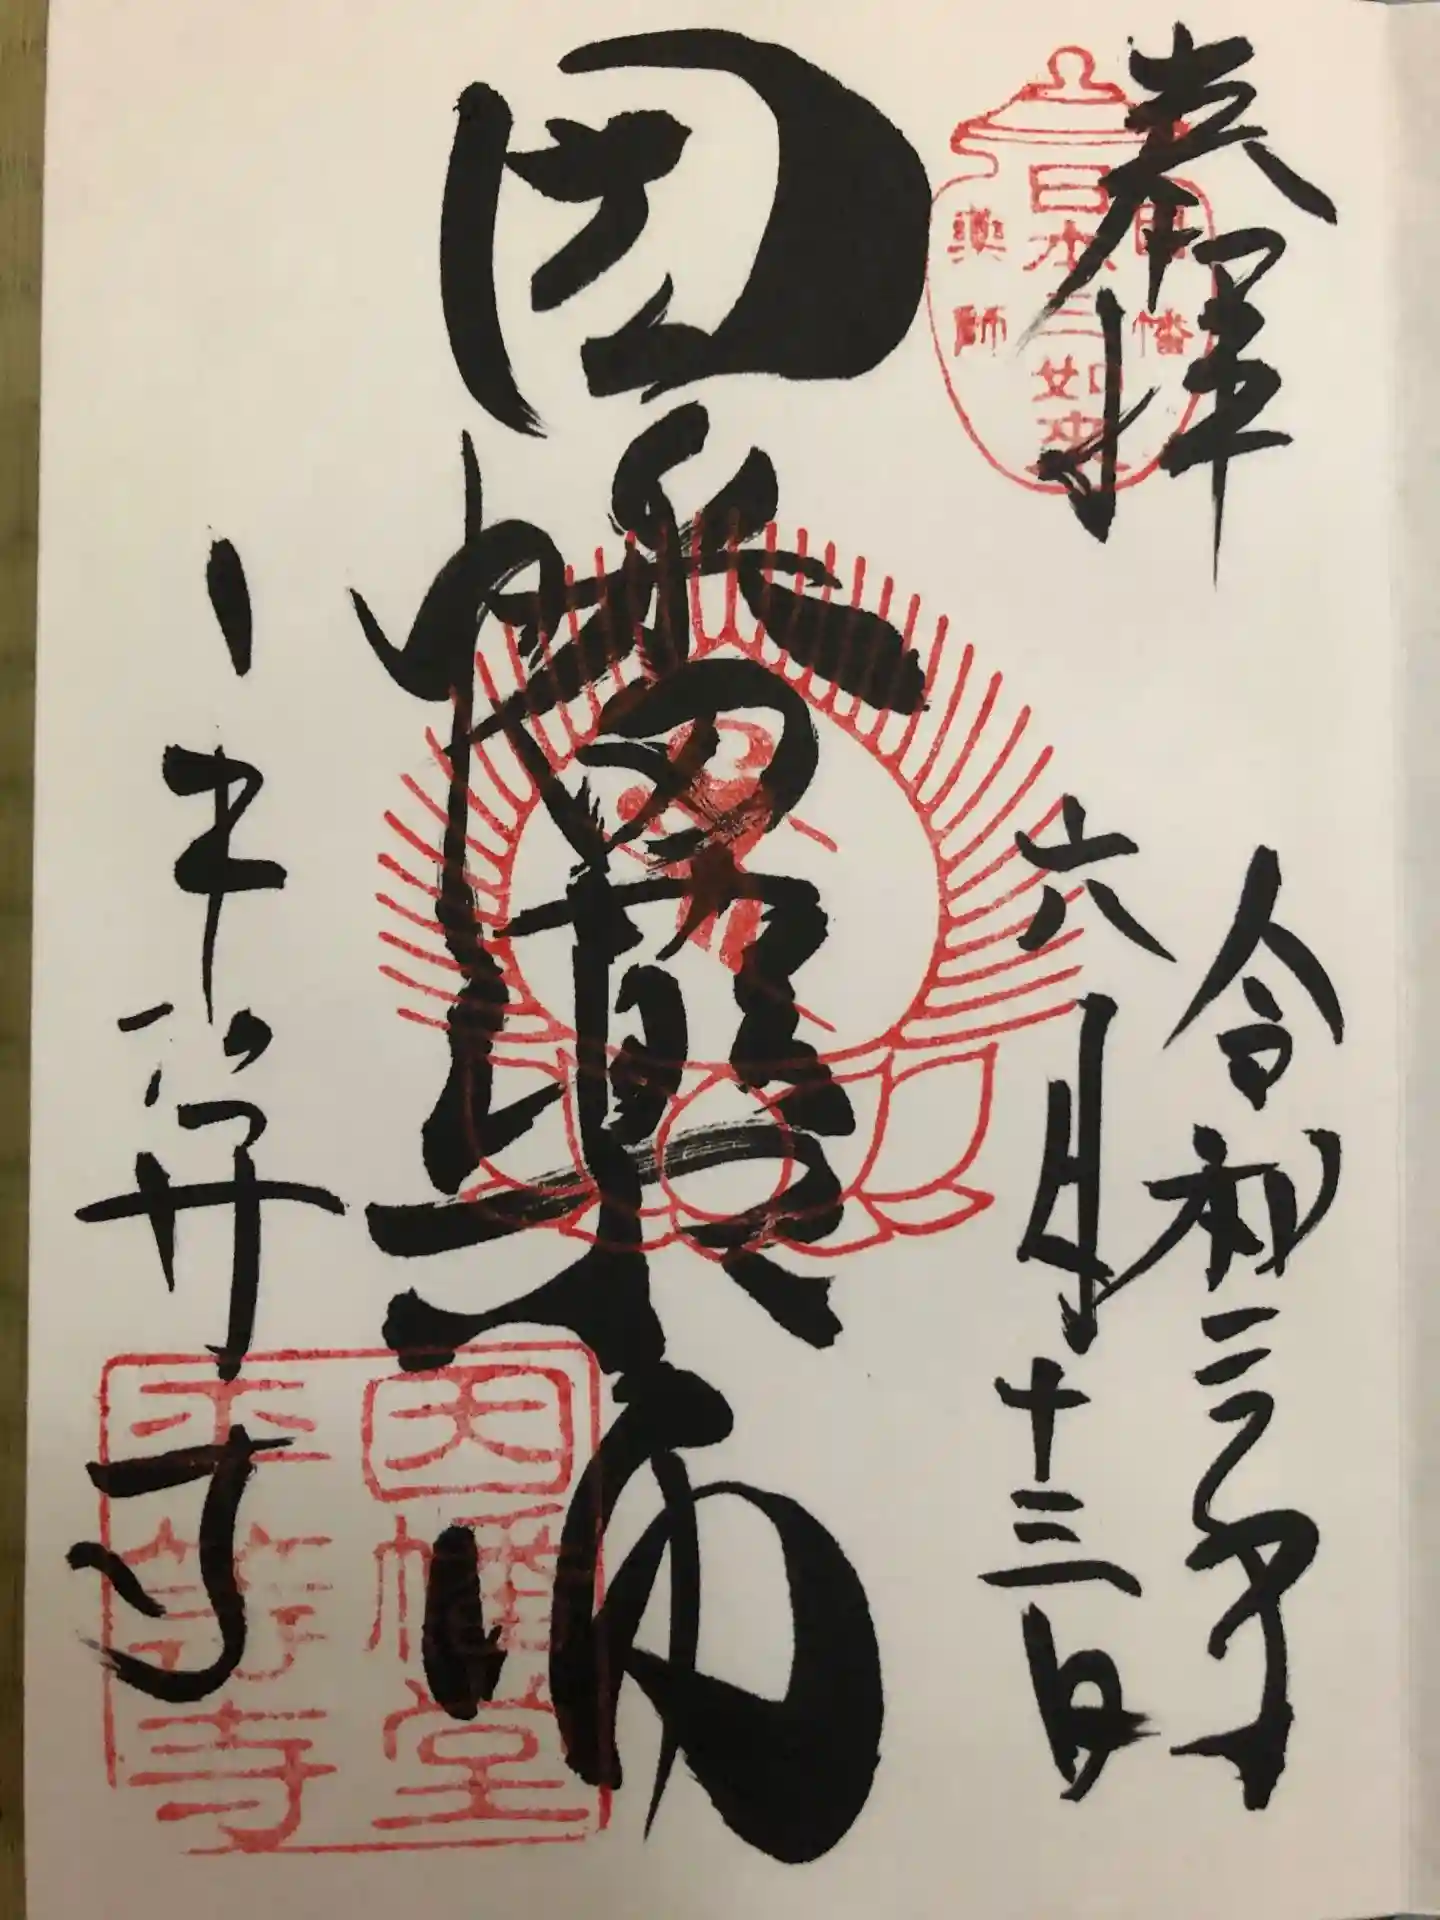 奉拝
日本三如来
因幡
薬師
令和三年
六月十三日
因幡薬師
平等寺
因幡堂
平等寺